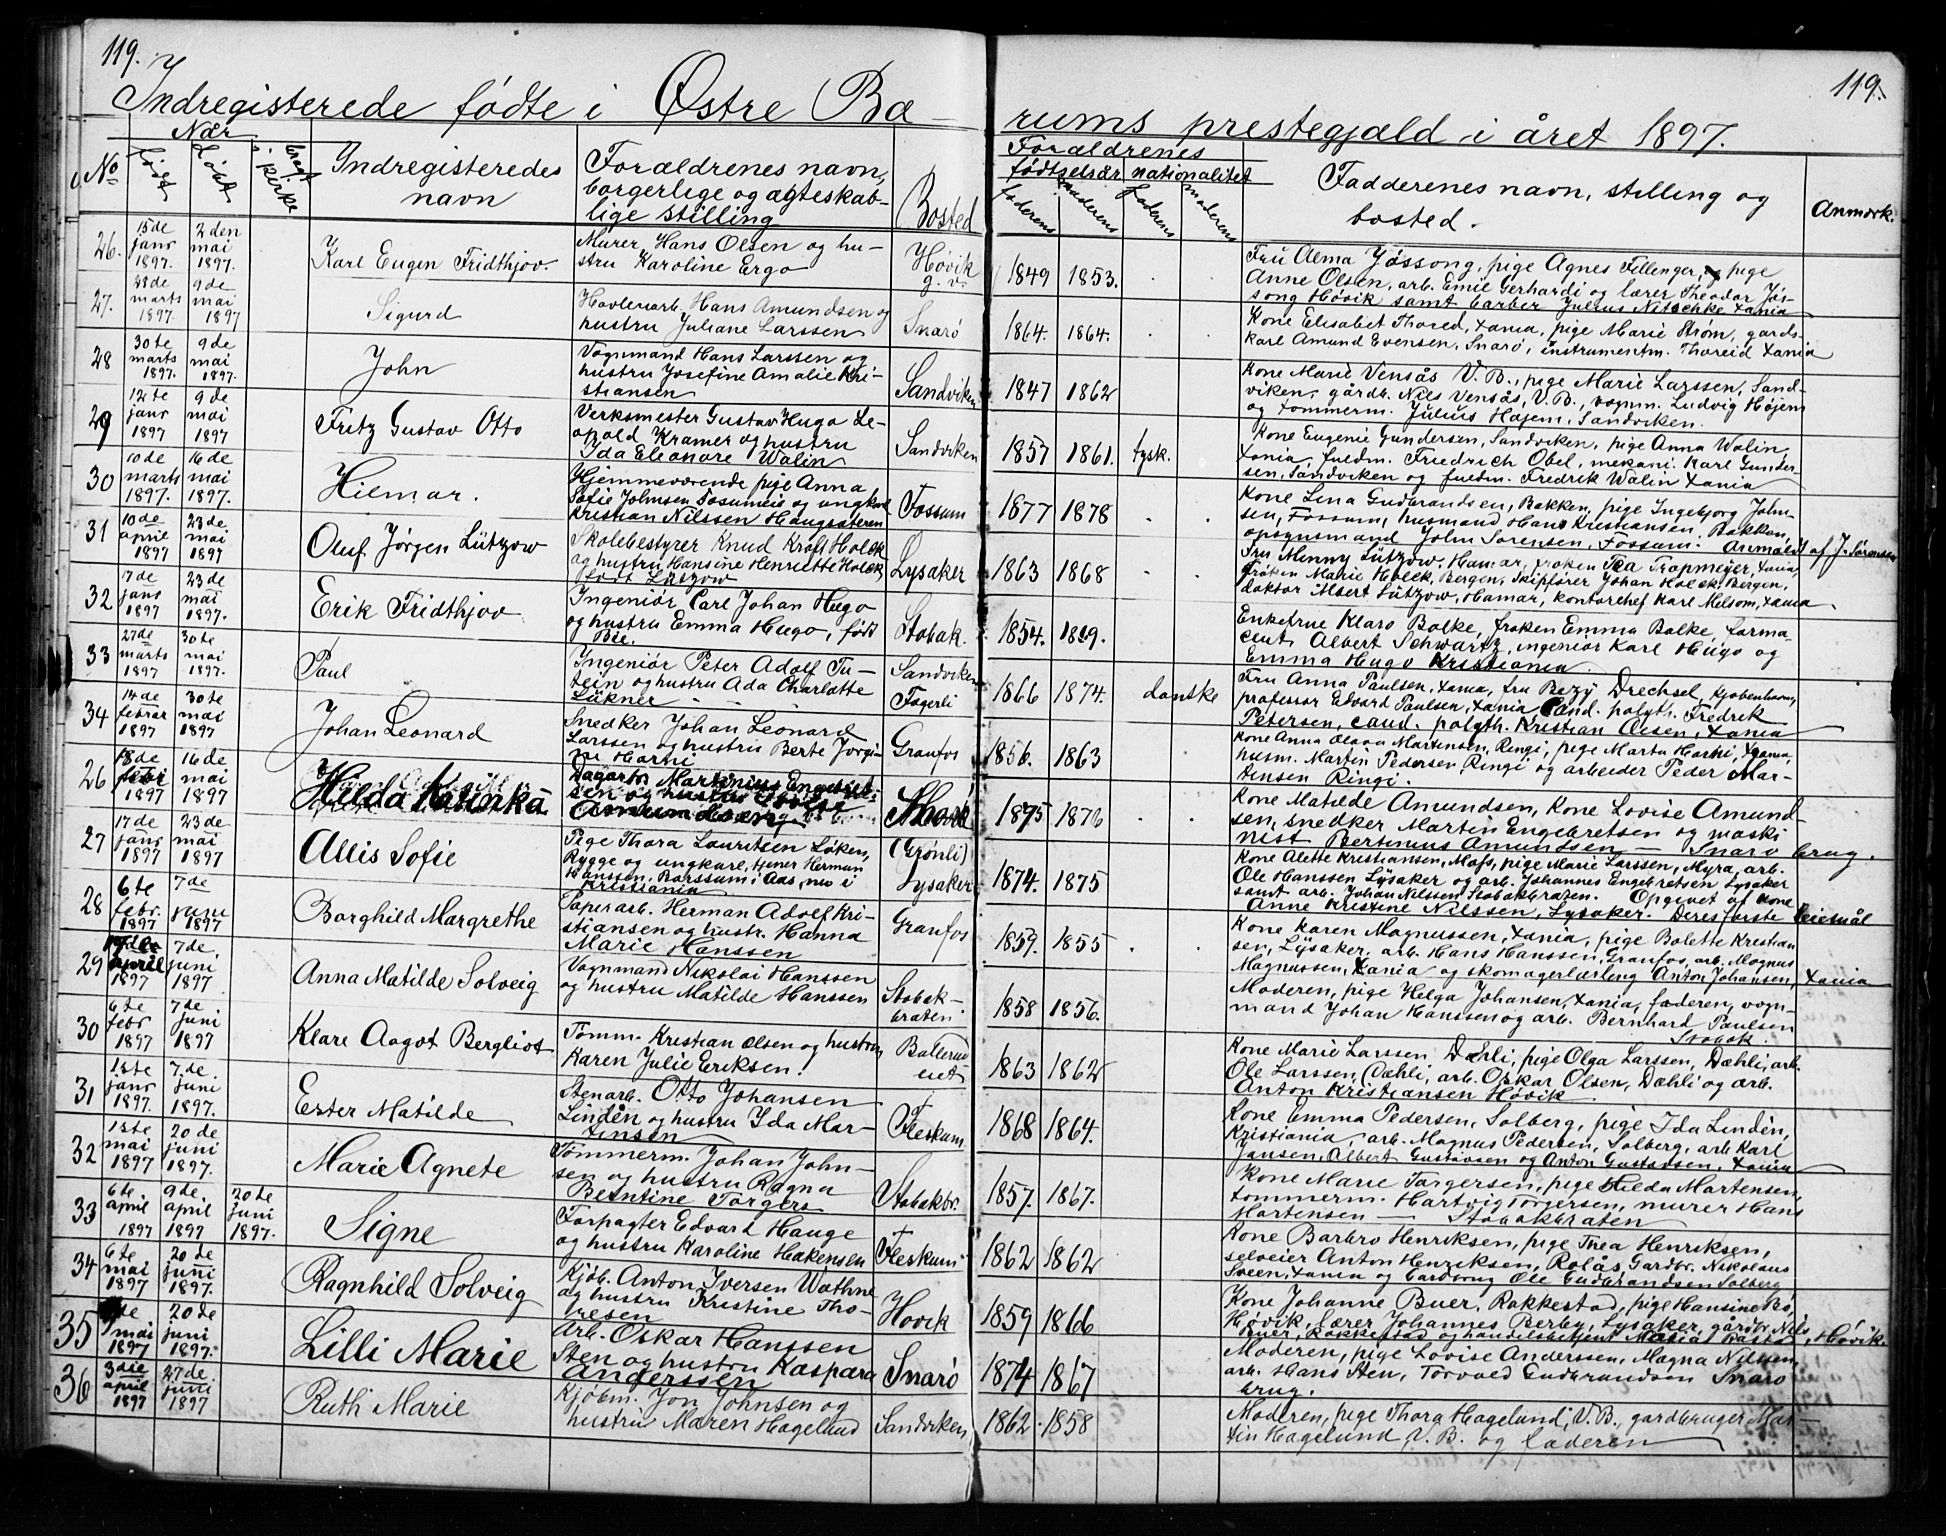 119.
119.
Indregisterede fødte i Østre Bæ-
rums prestegjæld i året 1897.
No
Når
født
døbt
bragt i kirke
Indregisteredes
navn
Forældrenes navn,
borgerlige og ægteskab-
lige stilling
Bosted
Forældrenes
fødselsår nationalitet
faderens
moderens
faderens
moderens
Fadderenes navn, stilling og
bosted.
Anmærk.
26.
15de
janr
1897.
2den
mai
1897.
Karl Eugen Fridthjov.
Murer Hans Olsen og hu-
stru Karoline Ergo
Høvik
g. v.
1849 1853.
Fru Alma Jøssong, pige Agnes Fellinger, pige
Anne Olsen, arb. Emil Gerhardi og lærer Theodor Jøs-
song Høvik samt barber Julius Nitschke Xania
27.
28de
marts
1897.
9de
mai
1897
Sigurd
Høvlerarb. Hans Amundsen og
hustru Juliane Larssen
Snarø
1864. 1864.
Kone Elisabet Thoreid, Xania, pige Marie Strøm, gards-
karl Amund Evensen, Snarø, instrumentm. Thoreid Xania
28
30te
marts
1897.
9de
mai
1897.
John
Vognmand Hans Larssen og
hustru Josefine Amalie Kri-
stiansen
Sandviken
1847 1862
Kone Marie Vensås V. B., pige Marie Larssen, Sand-
viken, gårdb. Nils Vensås, V. B., vognm. Ludvig Højem
og tommerm. Julius Højem, Sandviken.
29
12te
janr
1897
9de
mai
1897
Fritz Gustav Otto
Verksmester Gustav Hugo Le-
opold Kramer og hustru
Ida Eleonore Walin
Sandviken
1857 1861. tysk.
Kone Eugenie Gundersen, Sandviken, pige Anna Walin,
Xania, fuldm. Friedrich Obel, mekani. Karl Gunder-
sen, Sandviken og fuldm. Fredrik Walin Xania
30
10de
marts
1897.
16de
mai
1897.
Hilmar.
Hjemmeværende pige Anna
Sofie Johnsen Fossumeie og ungkarl
Kristian Nilssen Haugsæteren
Fossum
1877 1878
Kone Lina Gudbrandsen, Bakken, pige Ingebjorg John-
sen, Fossum, husmand Hans Kristiansen, Bakken,
opsynsmand John Sørensen, Fossum. Anmeldt af J. Sørensen
31
10de
april
1897
23de
mai
1897
Oluf Jørgen Lützow
Skolebestyrer Knud Kraft Holck
og hustru Hansine Henriette Holck,
født Lützow
Lysaker
1863 1868
Fru Menny Lützow, Hamar, frøken Tea Tropmeyer, Xania,
frøken Marie Holck, Bergen, skipfører Johan Holck, Bergen,
doktor Albert Lützow, Hamar, kontorchef Karl Melsom, Xania
32
7de
janr
1897
23de
mai
1897.
Erik Fridthjov
Ingeniør Carl Johan Hugo
og hustru Emma Hugo, født
Bie.
Stabæk.
1854. 1859.
Enkefrue Klara Bolke, frøken Emma Bolke, farma-
ceut Albert Schwartz, ingeniør Karl Hugo og
Emma Hugo Kristiania
33
27de
marts
1897
30te
mai
1897.
Paul
Ingeniør Peter Adolf Tu-
tein og hustru Ada Charlotte
Lükner
Sandviken
Fagerli
1866 1874. danske
Fru Anna Paulsen, Xania, fru Bezy Drechsel, Kjøbenhavn,
professor Edvard Paulsen, Xania Cand. polyt. Fredrik
Petersen, cand. polyth. Kristian Olsen, Xania
34
14de
februar
1897
30te
mai
1897
Johan Leonard
Snedker Johan Leonard
Larssen og hustru Berte Jørgi-
ne Harni
Granfos
1856. 1863
Kone Anna Olava Martensen, Ringi, pige Marta Harni, Xania,
husm. Martin Pedersen, Ringi og arbeider Peder Mar-
tensen Ringi.
26
18de
febr
1897
16de
mai
1897
Hilda Katinka
Dagarb. Martinius Engebret-
sen og hustru Lovise
Amundsen
Høvik
1875 1876
Kone Matilde Amundsen, Kone Lovise Amund-
sen, snedker Martin Engebretsen og maski
nist Bertinius Amundsen — Snarø brug.
27
17de
janr
1897
23de
mai
1897
Allis Sofie
Pige Thora Lauritsen Løken,
Rygge og ungkarl, tjener Herman
Hansten, Borssum i Aas, nu i
Kristiania
(Grønli)
Lysaker
1874. 1875
Kone Alette Kristiansen, Moss, pige Marie Larssen, Myra, arb.
Ole Hanssen Lysaker og arb. Johannes Engebretsen Lysaker
samt arb. Johan Nilssen Stabækbraten. Opgivet af kone
Anne Kristine Nilssen, Lysaker. Deres første leiemål
28
6te
febr.
1897
7de
juni
1897
Borghild Margrethe
Papirarb. Herman Adolf Kri-
stiansen og hustr. Hanna
Marie Hanssen
Granfos
1859. 1855
Kone Karen Magnussen, Xania, pige Bolette Kristian
sen, Lysaker, arb. Hans Hanssen, Granfos, arb. Magnus
Magnussen, Xania og skomagerlærling Anton Johansen, Xania
29
april
1897
7de
juni
1897.
Anna Matilde Solveig
Vognmand Nikolai Hanssen
og hustru Matilde Hanssen
Stabæk-
braten
1858 1856.
Moderen, pige Helga Johansen, Xania, faderen, vogn-
mand Johan Hanssen og arb. Bernhard Paulsen
Stabæk.
30
6te
febr
1897
7de
juni
1897
Klara Aagot Bergliot
Tømm. Kristian Olsen og hustru
Karen Julie Eriksen.
Ballerud
eiet
1863 1862
Kone Marie Larssen Dæhli, pige Olga Larssen, Dæhli, arb.
Ole Larssen, Dæhli, arb. Oskar Olsen, Dæhli og arb.
Anton Kristiansen Høvik
31
1ste
janr
1897.
7de
juni
1897.
Ester Matilde
Stenarb. Otto Johansen
Lindén og hustru Ida Mar-
tinsen
Fleskum
1868 1864.
Kone Emma Pedersen, Solberg, pige Ida Lindén,
Kristiania, arb. Magnus Pedersen, Solberg, arb. Karl
Jansen, Albert Gustavsen og Anton Gustavsen, Xania
32
1ste
mai
1897
20de
juni
1897.
Marie Agnete
Tømmerm. Johan John-
sen og hustru Ragna
Berntine Torgers
Stabækbr.
1857. 1867.
Kone Marie Torgersen, pige Hilda Martensen,
tommerm. Hartvig Torgersen, murer Hans
Martensen — Stabækbraten
33
6te
april
1897
9de
april
1897
20de
juni
1897.
Signe
Forpagter Edvard Hauge
og hustru Karoline Håkensen
Fleskum
1862 1862
Kone Barbro Henriksen, pige Thea Henriksen,
selveier Anton Henriksen, Rolås Gardbr. Nikolaus
Sveen, Xania og Gardbrug Ole Gudbrandsen Solberg
34
6te
mai
1897
20de
juni
1897.
Ragnhild Solveig
Kjøb. Anton Iversen Wathne
og hustru Kristine Tho-
resen
Høvik
1859 1866
Kone Johanne Buer, Rakkestad, pige Hansine Bø,
Høvik, lærer Johannes Berby, Lysaker, gårdbr. Nils
Buer, Rakkestad og handelsbetjent, Høvik.
35
mai
1897
20de
juni
1897.
Lilli Marie
Arb. Oskar Hanssen
Sten og hustru Kaspara
Anderssen
Snarø
1874 1867
Moderen, pige Lovise Anderssen, Magna Nilssen,
arb. Hans Sten, Torvald Gudbrandsen Snarø
brug.
36
3die
april
1897
27de
juni
1897
Ruth Marie
Kjøbm. Jon Johnsen og
hustru Maren Hagelund
Sandviken
1862. 1858
Moderen, pige Thora Hagelund, V. B., gardbruger Mar-
tin Hagelund V. B. og faderen